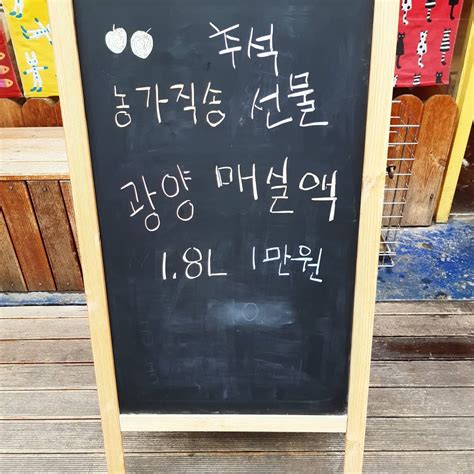 추석
농가직송 선물
광양 매실액
1.8L 1만원